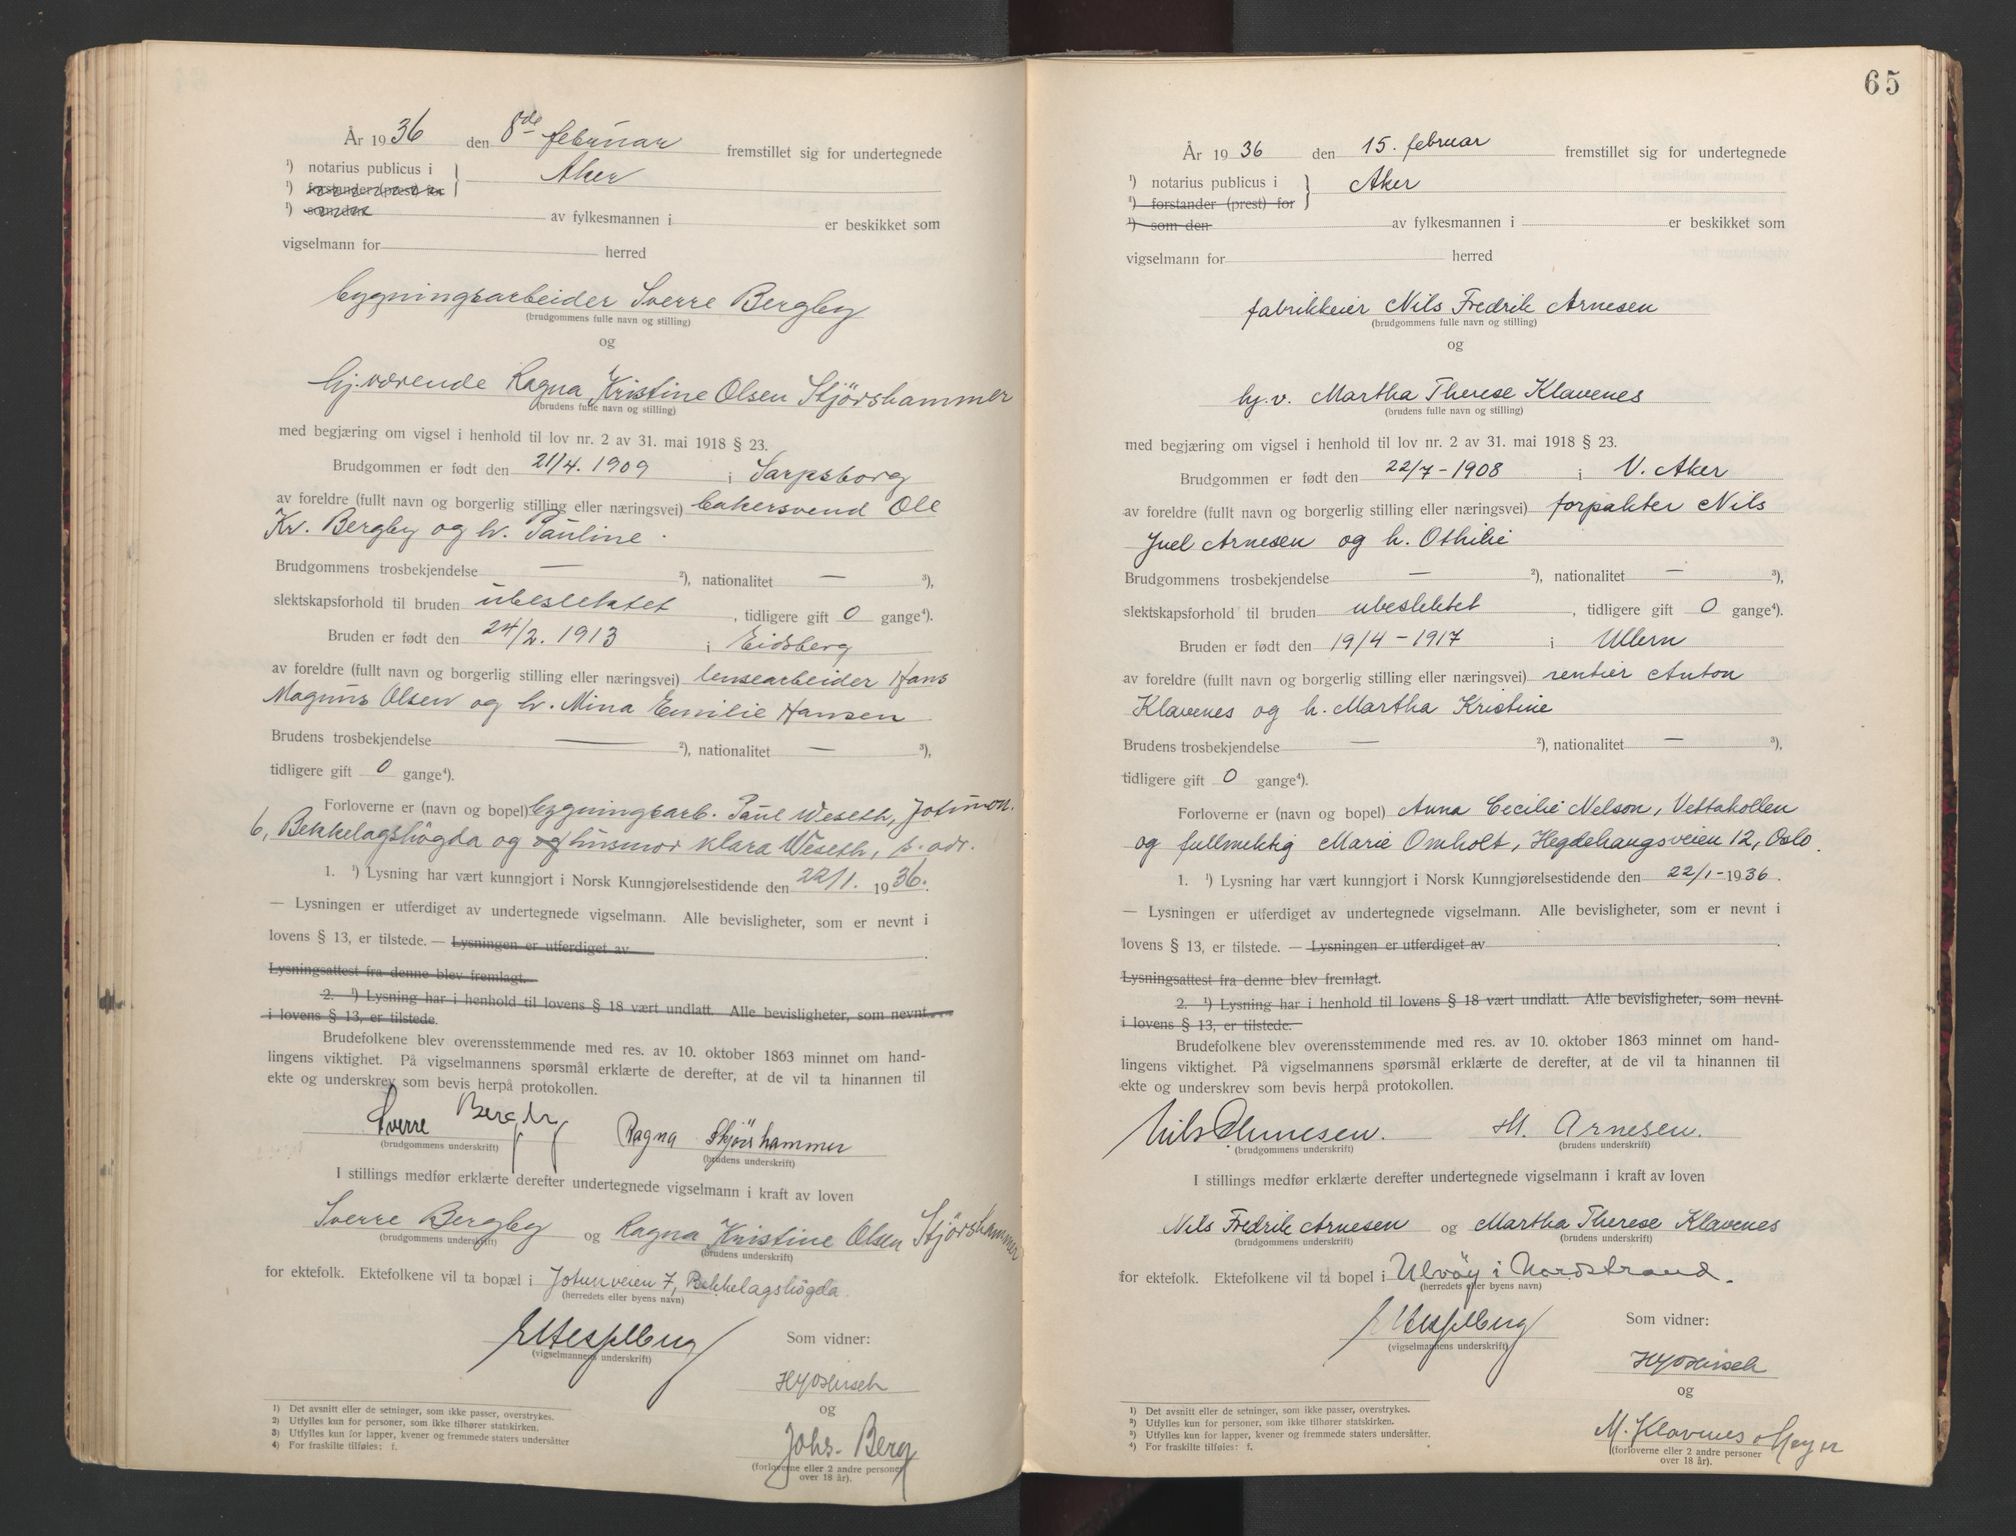 År 1936 den 8de februar fremstillet sig for undertegnede
¹) notarius publicus i Aker
¹) forstander (prest) for
¹) som den av fylkesmannen i er beskikket som
vigselmann for herred
bygningsarbeider Sverre Bergby
(brudgommens fulle navn og stilling)
og
hj.værende Ragna Kristine Olsen Stjørshammer
(brudens fulle navn og stilling)
med begjæring om vigsel i henhold til lov nr. 2 av 31. mai 1918 § 23.
Brudgommen er født den 21/4. 1909 i Sarpsborg
av foreldre (fullt navn og borgerlig stilling eller næringsvei) bakersvend Ole
Kr. Bergby og h. Pauline.
Brudgommens trosbekjendelse — ²), nationalitet — ³),
slektskapsforhold til bruden ubeslektet, tidligere gift 0 gange⁴).
Bruden er født den 24/2. 1913 i Eidsberg
av foreldre (fullt navn og borgerlig stilling eller næringsvei) lensearbeider Hans
Magnus Olsen og h. Mina Emilie Hansen
Brudens trosbekjendelse — ²), nationalitet — ³),
tidligere gift 0 gange⁴).
Forloverne er (navn og bopel) bygningsarb. Paul Weseth, Jotunvn.
6, Bekkelagshøgda og og husmor Klara Weseth, s. adr.
1. ¹) Lysning har vært kunngjort i Norsk Kunngjørelsestidende den 22/1. 1936.
— Lysningen er utferdiget av undertegnede vigselmann. Alle bevisligheter, som er nevnt i
lovens § 13, er tilstede. — Lysningen er utferdiget av
Lysningsattest fra denne blev fremlagt.
2. ¹) Lysning har i henhold til lovens § 18 vært undlatt. Alle bevisligheter, som nevnt
i lovens § 13, er tilstede.
Brudefolkene blev overensstemmende med res. av 10. oktober 1863 minnet om hand-
lingens viktighet. På vigselmannens spørsmål erklærte de derefter, at de vil ta hinannen til
ekte og underskrev som bevis herpå protokollen.
Sverre Bergby Ragna Stjørshammer
(brudgommens underskrift) (brudens underskrift)
I stillings medfør erklærte derefter undertegnede vigselmann i kraft av loven
Sverre Bergby og Ragna Kristine Olsen Stjørshammer
(brudgommens underskrift) (brudens underskrift)
for ektefolk. Ektefolkene vil ta bopæl i Jotunveien 7, Bekkelagshögda.
(herredets eller byens navn)
(vigselmannens underskrift)
Som vidner:
og
Johs. Berg
(forloverne eller 2 andre personer
over 18 år).
1) Det avsnitt eller de setninger, som ikke passer, overstrykes.
2) Utfylles kun for personer, som ikke tilhører statskirken.
3) Utfylles kun for lapper, kvener og fremmede staters undersåtter
4) For fraskilte tilføies: f.
65
År 1936 den 15. februar fremstillet sig for undertegnede
¹) notarius publicus i Aker
¹) forstander (prest) for
¹) som den av fylkesmannen i er beskikket som
vigselmann for herred
fabrikkeier Nils Fredrik Arnesen
(brudgommens fulle navn og stilling)
og
hj.v. Martha Therese Klavenes
(brudens fulle navn og stilling)
med begjæring om vigsel i henhold til lov nr. 2 av 31. mai 1918 § 23.
Brudgommen er født den 22/7-1908 i V. Aker
av foreldre (fullt navn og borgerlig stilling eller næringsvei) forpakter Nils
Juel Arnesen og h. Othilie
Brudgommens trosbekjendelse — ²), nationalitet — ³),
slektskapsforhold til bruden ubeslektet, tidligere gift 0 gange⁴).
Bruden er født den 19/4-1917 i Ullern
av foreldre (fullt navn og borgerlig stilling eller næringsvei) rentier Anton
Klavenes og h. Martha Kristine
Brudens trosbekjendelse — ²), nationalitet — ³),
tidligere gift 0 gange⁴).
Forloverne er (navn og bopel) Anna Cecilie Nelson, Vettakollen
og fullmektig Marie Omholt, Hegdehaugsveien 12, Oslo.
1. ¹) Lysning har vært kunngjort i Norsk Kunngjørelsestidende den 22/1-1936.
— Lysningen er utferdiget av undertegnede vigselmann. Alle bevisligheter, som er nevnt i
lovens § 13, er tilstede. — Lysningen er utferdiget av
Lysningsattest fra denne blev fremlagt.
2. ¹) Lysning har i henhold til lovens § 18 vært undlatt. Alle bevisligheter, som nevnt
i lovens § 13, er tilstede.
Brudefolkene blev overensstemmende med res. av 10. oktober 1863 minnet om hand-
lingens viktighet. På vigselmannens spørsmål erklærte de derefter, at de vil ta hinannen til
ekte og underskrev som bevis herpå protokollen.
Nils Arnesen. M. Arnesen.
(brudgommens underskrift) (brudens underskrift)
I stillings medfør erklærte derefter undertegnede vigselmann i kraft av loven
Nils Fredrik Arnesen og Martha Therese Klavenes
(brudgommens underskrift) (brudens underskrift)
for ektefolk. Ektefolkene vil ta bopel i Ulvöy i Nordstrand.
(herredets eller byens navn)
(vigselmannens underskrift)
Som vidner:
og
M. Klavenes Meyer
(forloverne eller 2 andre personer
over 18 år).
1) Det avsnitt eller de setninger, som ikke passer, overstrykes.
2) Utfylles kun for personer, som ikke tilhører statskirken.
3) Utfylles kun for lapper, kvener og fremmede staters undersåtter.
4) For fraskilte tilføies: f.